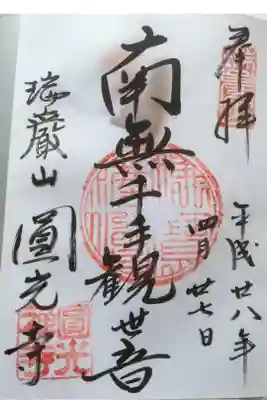 奉拝
平成廿八年
四月廿七日
南無千手観世音
瑞巌山
圓光寺